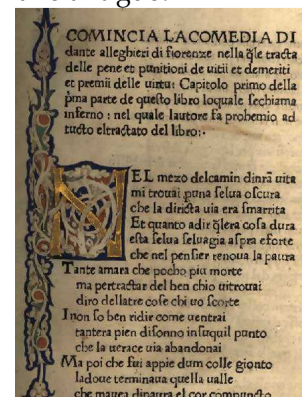 COMINCIA LA COMEDIA DI
dante alleghieri di fiorenze nella q̃le tracta
delle pene et punitioni de uitii et demeriti
et premii delle uirtu: Capitolo primo della
p̃ma parte de questo libro loquale sechiama
inferno: nel quale lautore fa prohemio ad
tucto eltractato del libro:·
NEL mezo delcamin dinr̃a uita
mi trouai p̱una selua oscura
che la diricta uia era smarrita
Et quanto adir q̃lera cosa dura
esta selua seluagia aspra eforte
che nel pensier renoua la paura
Tante amara che pocho piu morte
ma pertractar del ben chio uitrouai
diro dellatre cose chi uo scorte
I non so ben ridire come uentrai
tantera pien disonno insuquil punto
che la uerace uia abandonai
Ma poi che fui appie dum colle gionto
ladoue terminaua quella ualle
che mauea dipaura el cor compuncto